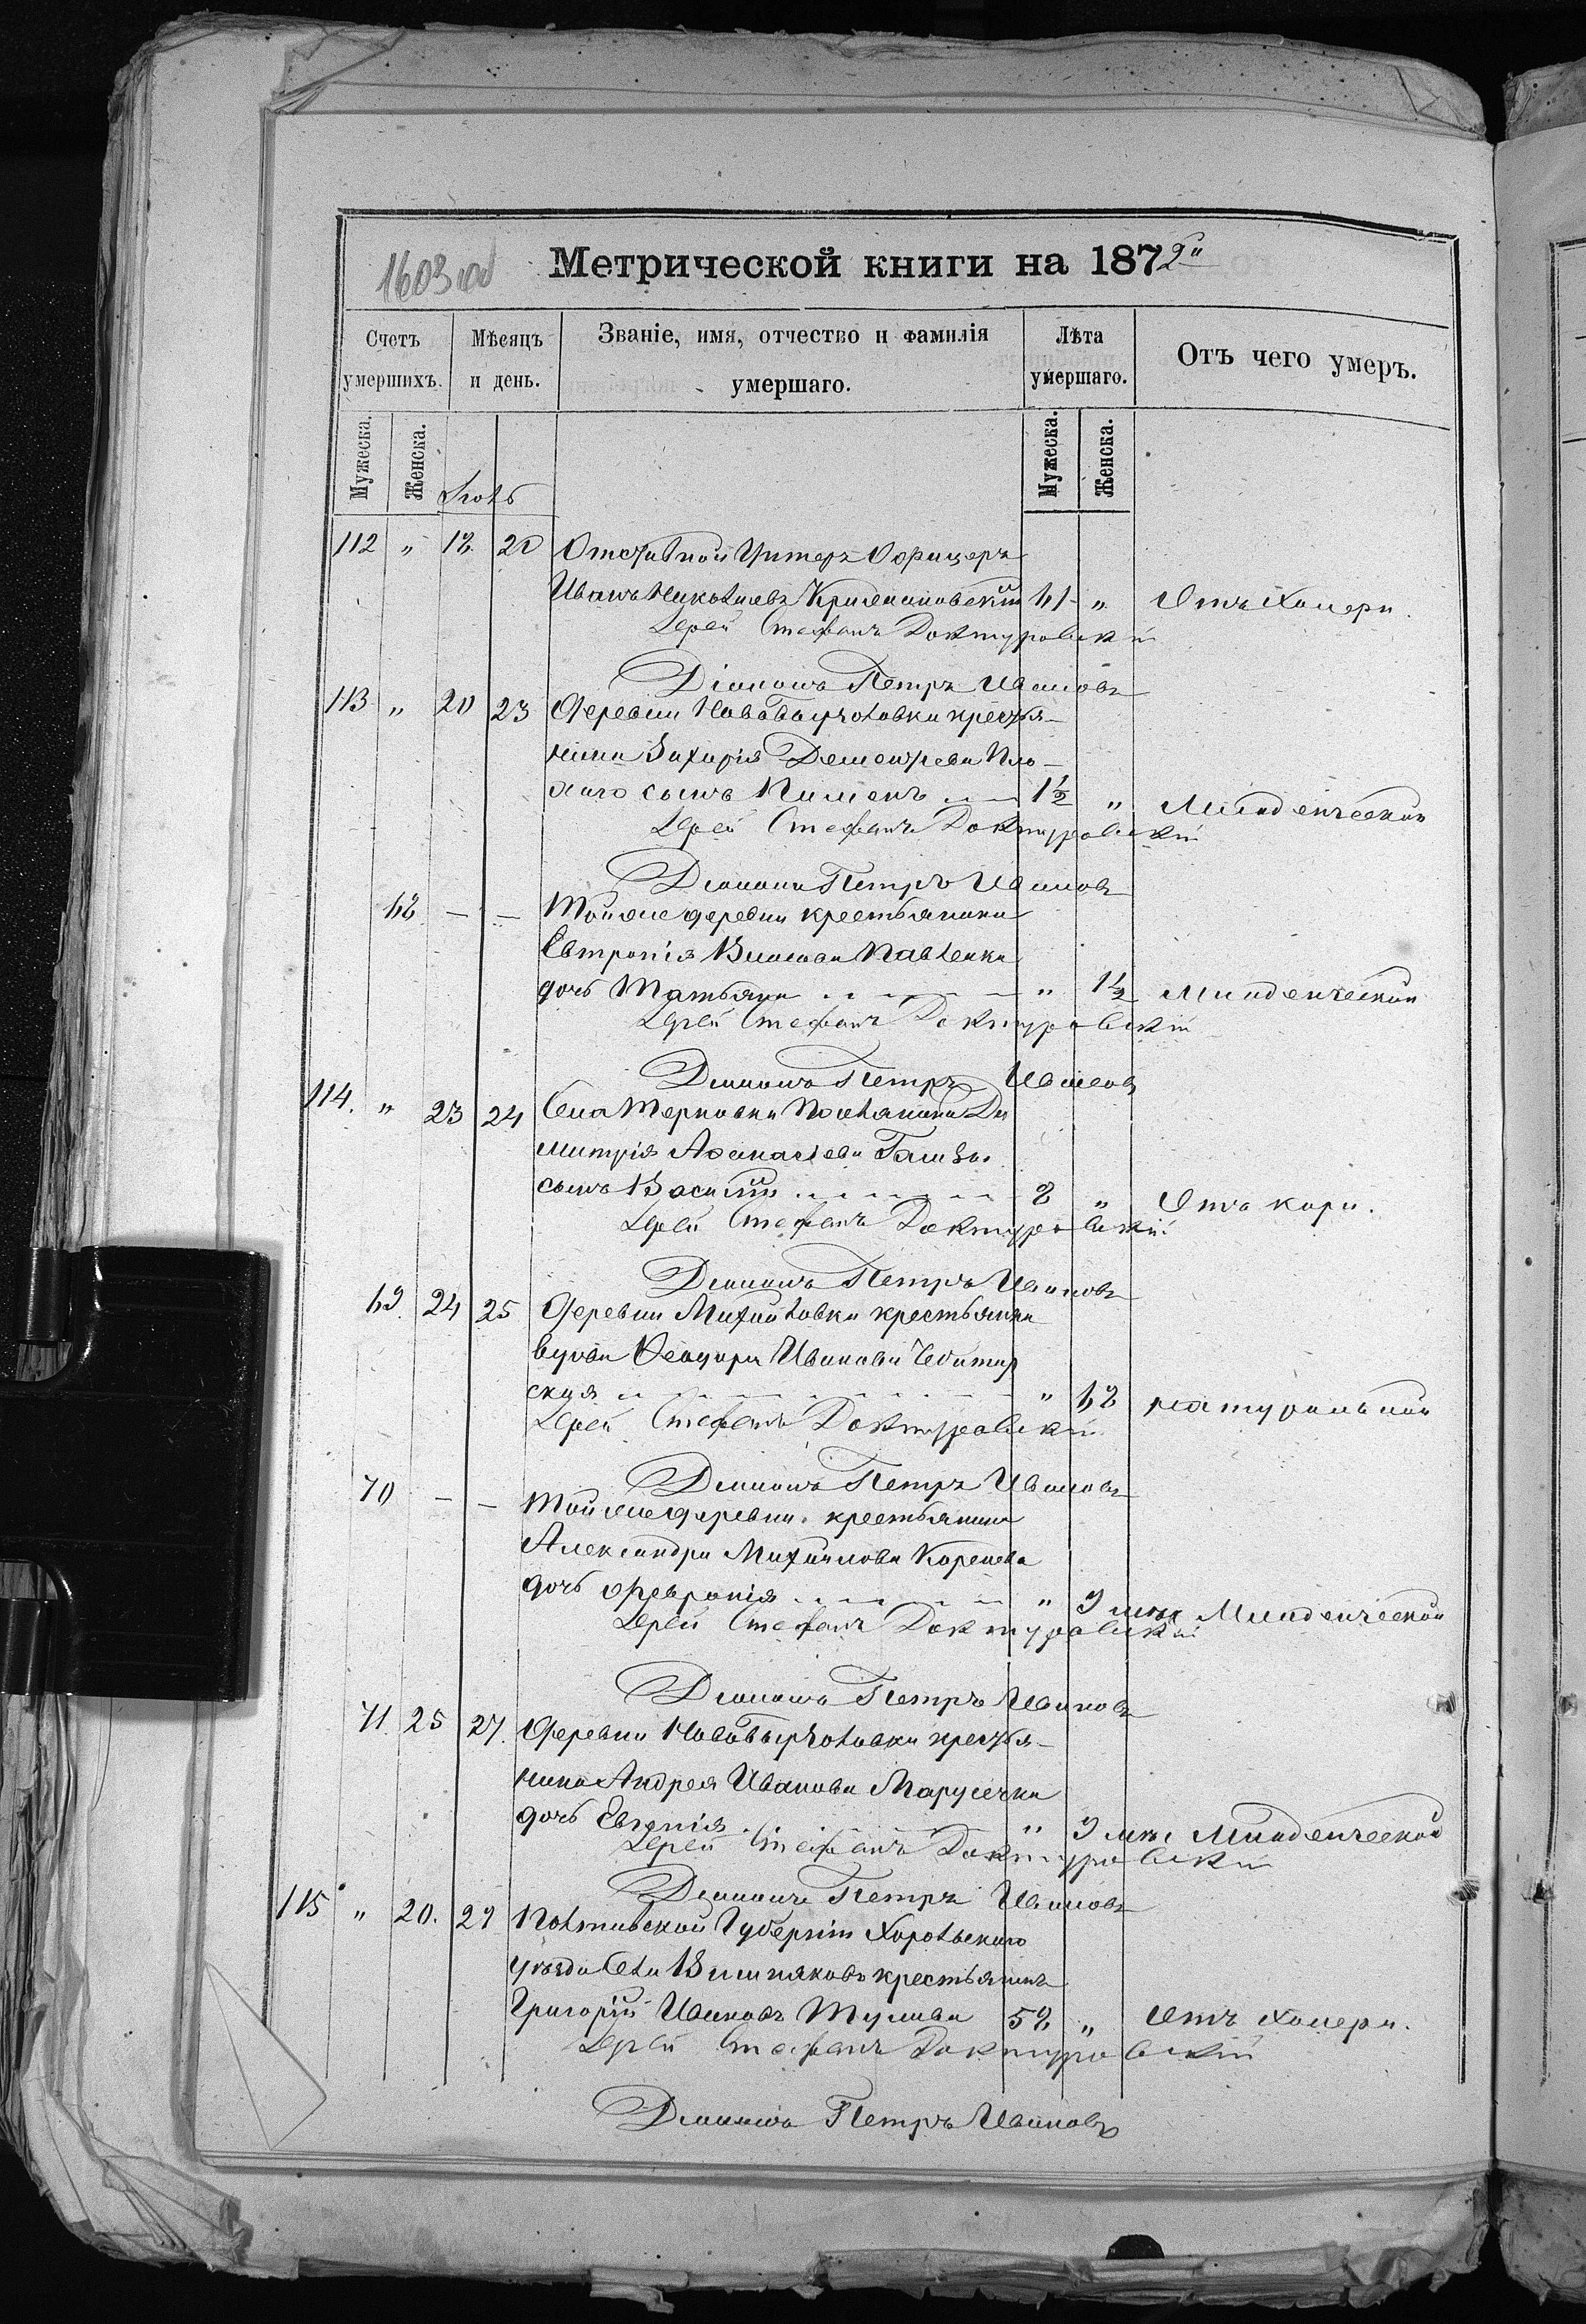 1603 об
Метрической книги на 1872й
Счетъ умершихъ.
Мѣсяцъ и день.
Званіе, имя, отчество и фамилія умершаго.
Лѣта умершаго.
Отъ чего умеръ.
Мужеска.
Женска.
Мужеска.
Женска.
112 „ 18. 20 Отставной Унтеръ Офицеръ
Иванъ Николаевъ 41 „ Отъ холеры.
Іерей Стефанъ Доктуровскій
Діаконъ Петръ Ивановъ
113 „ 20 23 Деревни крестья-
нина Захарія Дементьева Пло-
хаго сынъ Пименъ 1½ „ Младенческой
Іерей Стефанъ Доктуровскій
Діаконъ Петръ Ивановъ
68 — — Той же деревни крестьянина
Евтропія Павленка
дочь Татьяна „ 1½ Младенческой
Іерей Стефанъ Доктуровскій
Діаконъ Петръ Ивановъ
114. „ 23 24 Села Терновки Поселянина Ди
митрія Аѳанасіева
сынъ Василій 2 „ Отъ кори.
Іерей Стефанъ Доктуровскій
Діаконъ Петръ Ивановъ
69. 24 25 Деревни Михайловки крестьянка
вдова Ѳеодора Иванова
ская „ 68 натуральной
Іерей Стефанъ Доктуровскій
Діаконъ Петръ Ивановъ
70 — — Той же деревни крестьянина
Александра Михайлова Коренева
дочь Февронія „ 9 мѣс Младенческой
Іерей Стефанъ Доктуровскій
Діаконъ Петръ Ивановъ
71 25 27. Деревни крестья-
нина Андрея Иванова Марусечка
дочь Евгенія „ 9 мѣс Младенческой
Іерей Стефанъ Доктуровскій
Діаконъ Петръ Ивановъ
115 „ 29 Полтавской Губерніи Хорольскаго
уѣзда Села Вишняковъ крестьянинъ
Григорій Ивановъ 52 „ Отъ холеры.
Іерей Стефанъ Доктуровскій
Діаконъ Петръ Ивановъ